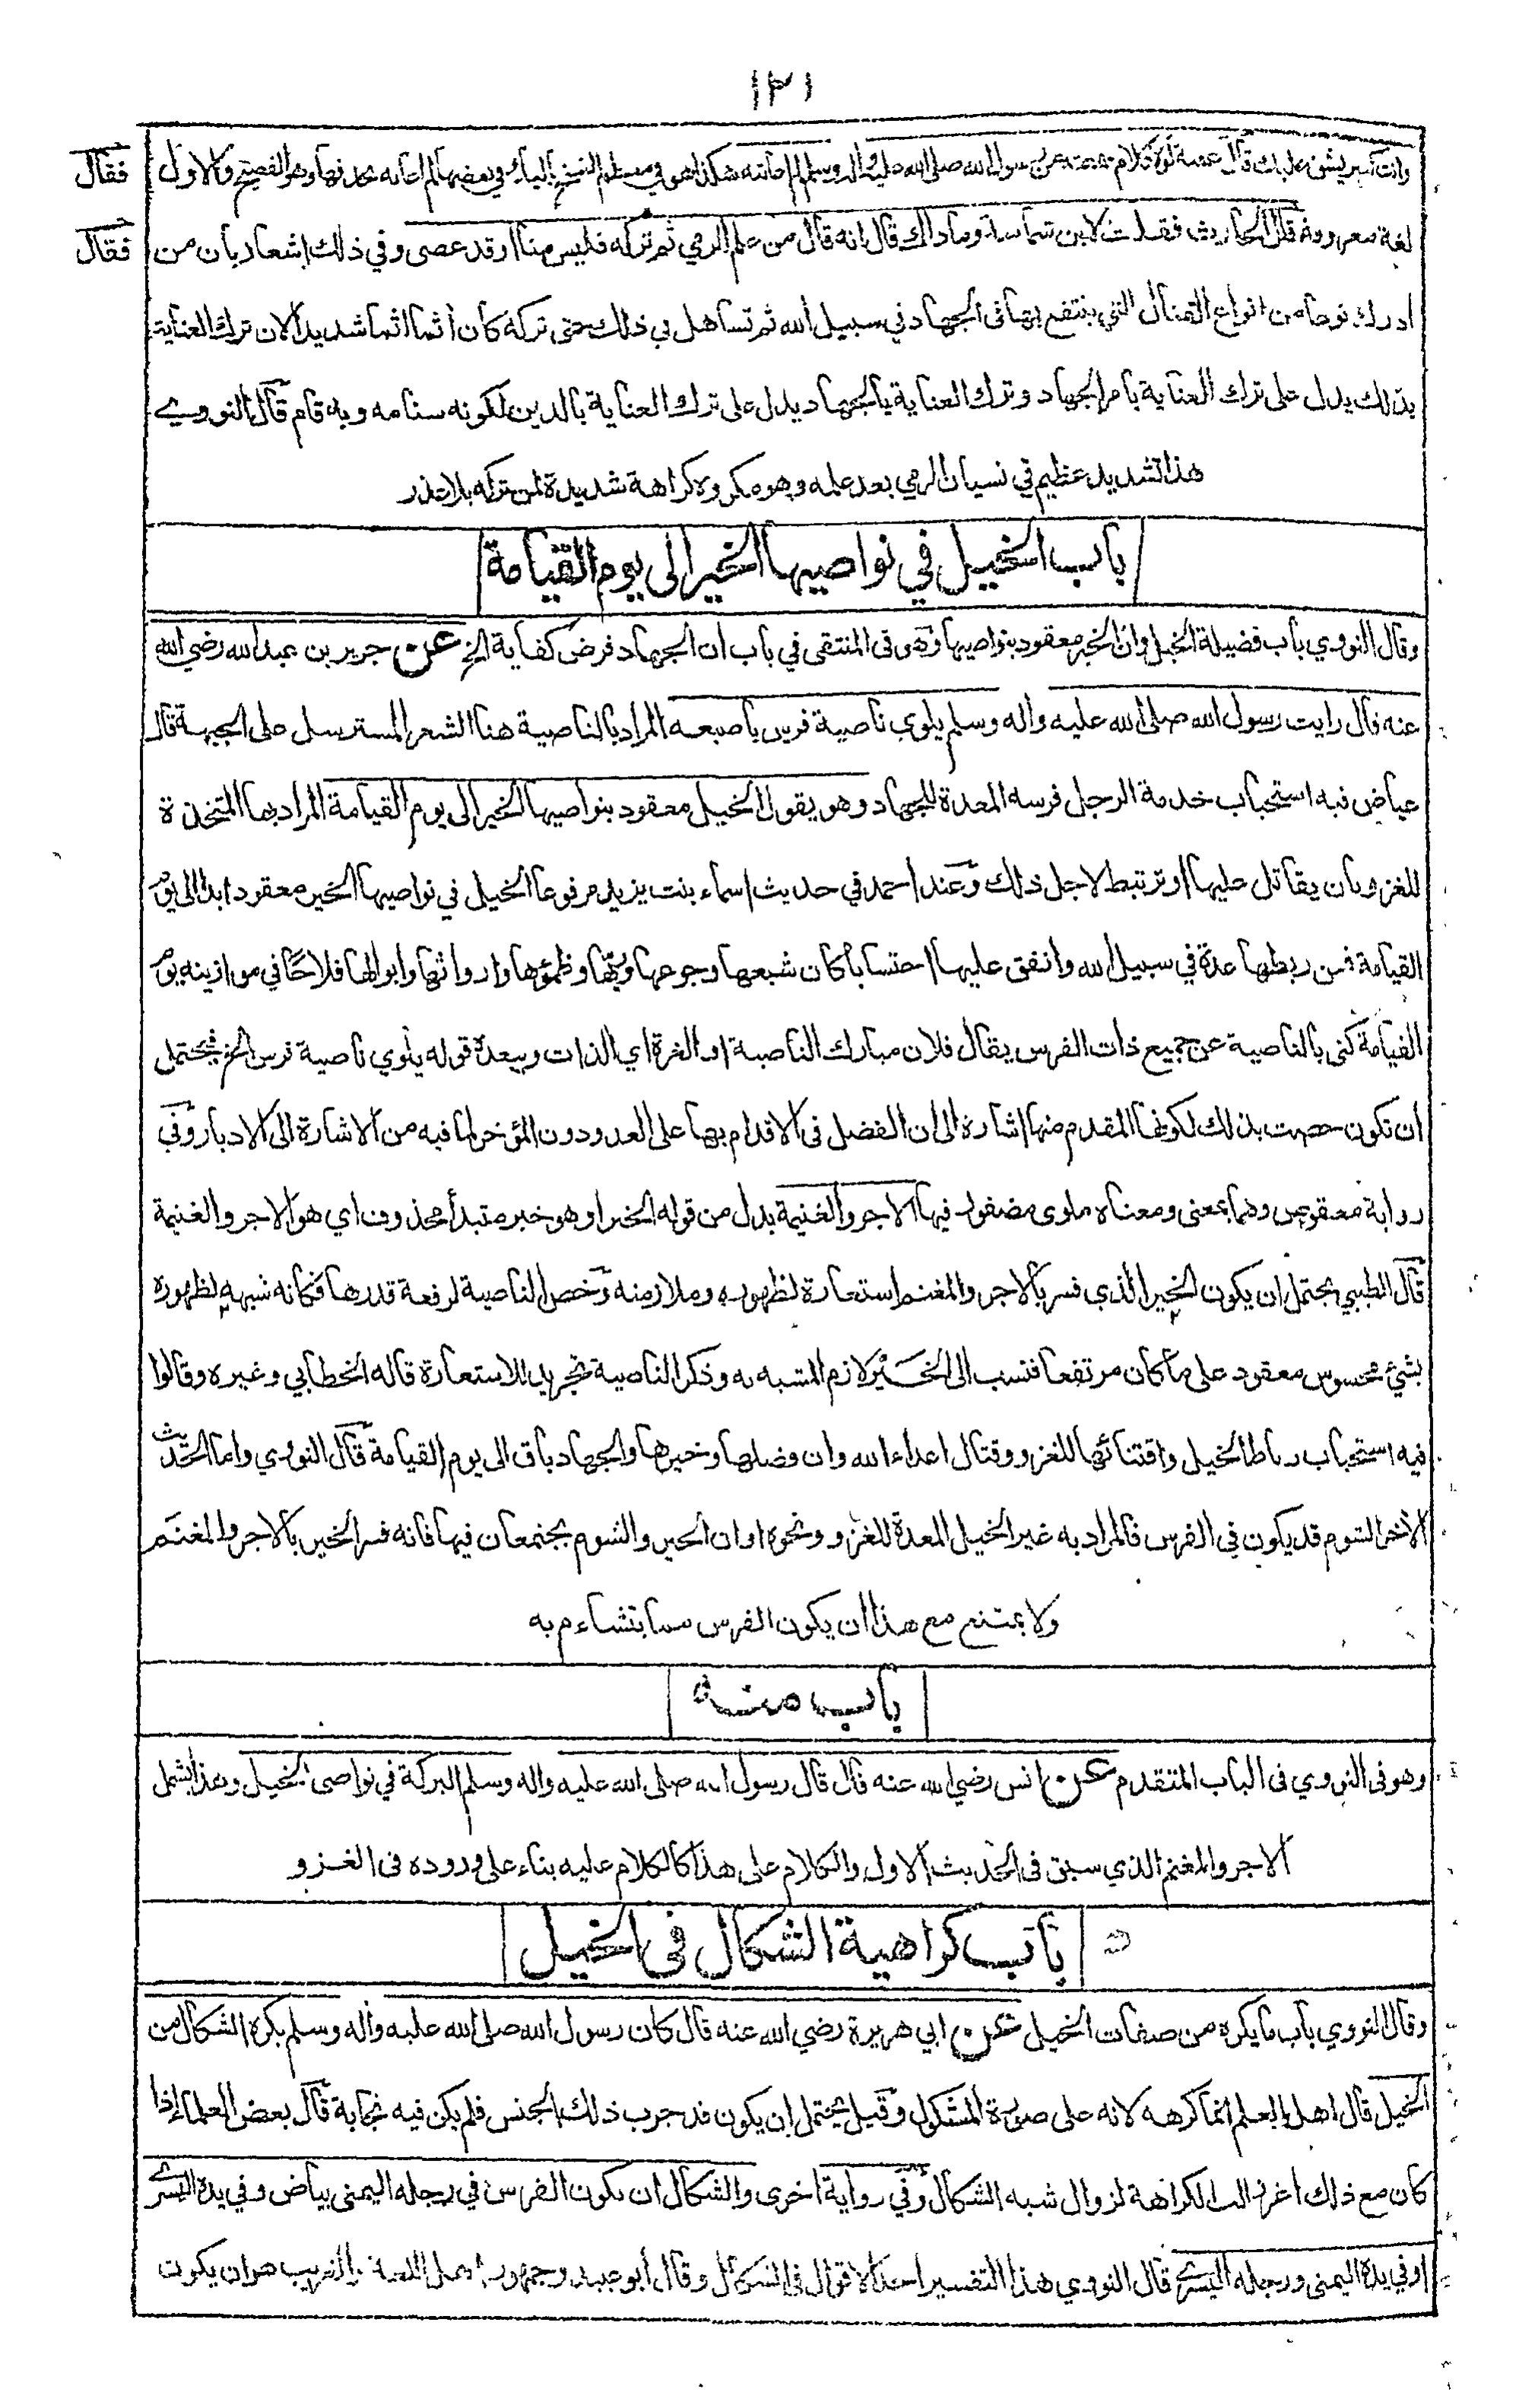 ١٣١
وانت كبير يشق عليك قال عقبة لولا كلام سمعته من رسول الله صلى الله عليه وآله وسلم لم اعانيه هكذا هو في معظم النسخ بالياء وفي بعضها لم اعانه بحذفها وهو الفصيح والاول
فقال
لغة معروفة قال الحارث فقلت لابن شماسة وما ذاك قال انه قال من علم الرمي ثم تركه فليس منا او قد عصى وفي ذلك اشعار بان من
فقال
ادرك نوعا من انواع القتال التي ينتفع بها في الجهاد في سبيل الله ثم تساهل في ذلك حتى تركه كان آثما اثما شديدا لان ترك العناية
بذلك يدل على ترك العناية بامر الجهاد وترك العناية بالجهاد يدل على ترك العناية بالدين لكونه سنامه وبه قام قال النووي
هذا تشديد عظيم في نسيان الرمي بعد علمه وهو مكروه كراهة شديدة لمن تركه بلا عذر
باب الخيل في نواصيها الخير الى يوم القيامة
وقال النووي باب فضيلة الخيل وان الخير معقود بنواصيها وهو في المنتقى في باب ان الجهاد فرض كفاية الخ عن جرير بن عبد الله رضي الله
عنه قال رايت رسول الله صلى الله عليه وآله وسلم يلوي ناصية فرس باصبعه المراد بالناصية هنا الشعر المسترسل على الجبهة قال
عياض فيه استحباب خدمة الرجل فرسه المعدة للجهاد وهو يقول الخيل معقود بنواصيها الخير الى يوم القيامة المراد بها المتخذة
للغزو بان يقاتل عليها او ترتبط لاجل ذلك وعند احمد في حديث اسماء بنت يزيد مرفوعا الخيل في نواصيها الخير معقود ابدا الى يوم
القيامة فمن ربطها عدة في سبيل الله وانفق عليها احتسابا كان شبعها وجوعها وريها وظمؤها وارواثها وابوالها فلاحا في موازينه يوم
القيامة كنى بالناصية عن جميع ذات الفرس يقال فلان مبارك الناصية او الغرة اي الذات ويبعده قوله يلوي ناصية فرس الخ فيحتمل
ان تكون خصت بذلك لكونها المقدم منها اشارة الى ان الفضل في الاقدام بها على العدو دون المؤخر لما فيه من الاشارة الى الادبار وفي
رواية معقوص وهما بمعنى ومعناه ملوى مضفور فيها الاجر والغنيمة بدل من قوله الخير او هو خبر مبتدأ محذوف اي هو الاجر والغنيمة
قال الطيبي يحتمل ان يكون الخير الذي فسر بالاجر والمغنم استعارة لظهوره وملازمته وخص الناصية لرفعة قدرها فكانه شبهه لظهوره
بشئ محسوس معقود على ما كان مرتفعا فنسب الى الخير لازم المشبه به وذكر الناصية تجريد للاستعارة قاله الخطابي وغيره وقالوا
فيه استحباب رباط الخيل واقتنائها للغزو وقتال اعداء الله وان فضلها وخيرها والجهاد باق الى يوم القيامة قال النووي واما الحديث
الآخر الشوم قد يكون في الفرس فالمراد به غير الخيل المعدة للغزو ونحوه او ان الخير والشوم يجتمعان فيها فانه فسر الخير بالاجر والمغنم
ولا يمتنع مع هذا ان يكون الفرس مما يتشاءم به
باب منه
وهو في النووي في الباب المتقدم عن انس رضي الله عنه قال قال رسول الله صلى الله عليه وآله وسلم البركة في نواصي الخيل وهذا يشمل
الاجر والمغنم الذي سبق في الحديث الاول والكلام على هذا كالكلام عليه بناء على وروده في الغزو
باب كراهية الشكال في الخيل
وقال النووي باب ما يكره من صفات الخيل عن ابي هريرة رضي الله عنه قال كان رسول الله صلى الله عليه وآله وسلم يكره الشكال من
الخيل قال اهل العلم انما كرهه لانه على صورة المشكول وقيل يحتمل ان يكون قد جرب ذلك الجنس فلم يكن فيه نجابة قال بعض العلماء اذا
كان مع ذلك اغر زالت الكراهة لزوال شبه الشكال وفي رواية اخرى والشكال ان يكون الفرس في رجله اليمنى بياض وفي يده اليسرى
او في يده اليمنى ورجله اليسرى قال النووي هذا التفسير احد الاقوال في الشكال وقال أبو عبيد وجمهور اهل اللغة والغريب هو ان يكون